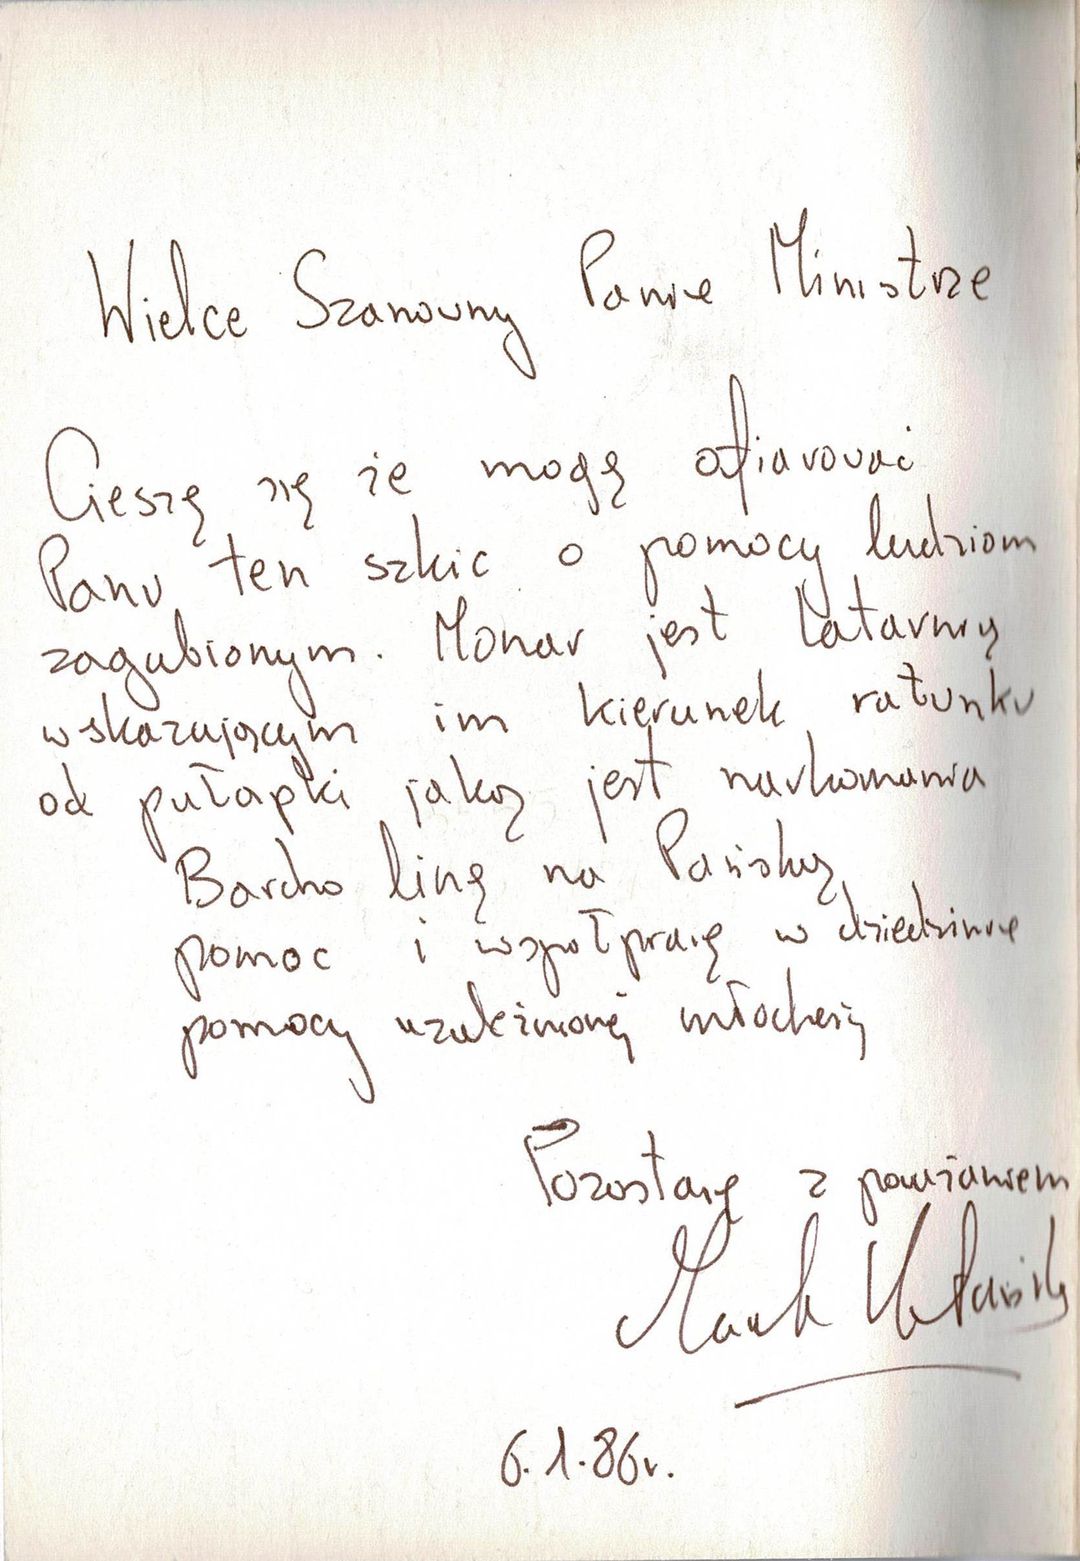 Wielce Szanowny Panie Ministrze
Cieszę się że mogę ofiarować
Panu ten szkic o pomocy ludziom
zagubionym. Monar jest latarnią
wskazującym im kierunek ratunku
od pułapki jaką jest narkomania
Bardzo liczę na Pańską
pomoc i współpracę w dziedzinie
pomocy uzależnionej młodzieży
Pozostaję z poważaniem
Marek Kotański
6.1.86r.